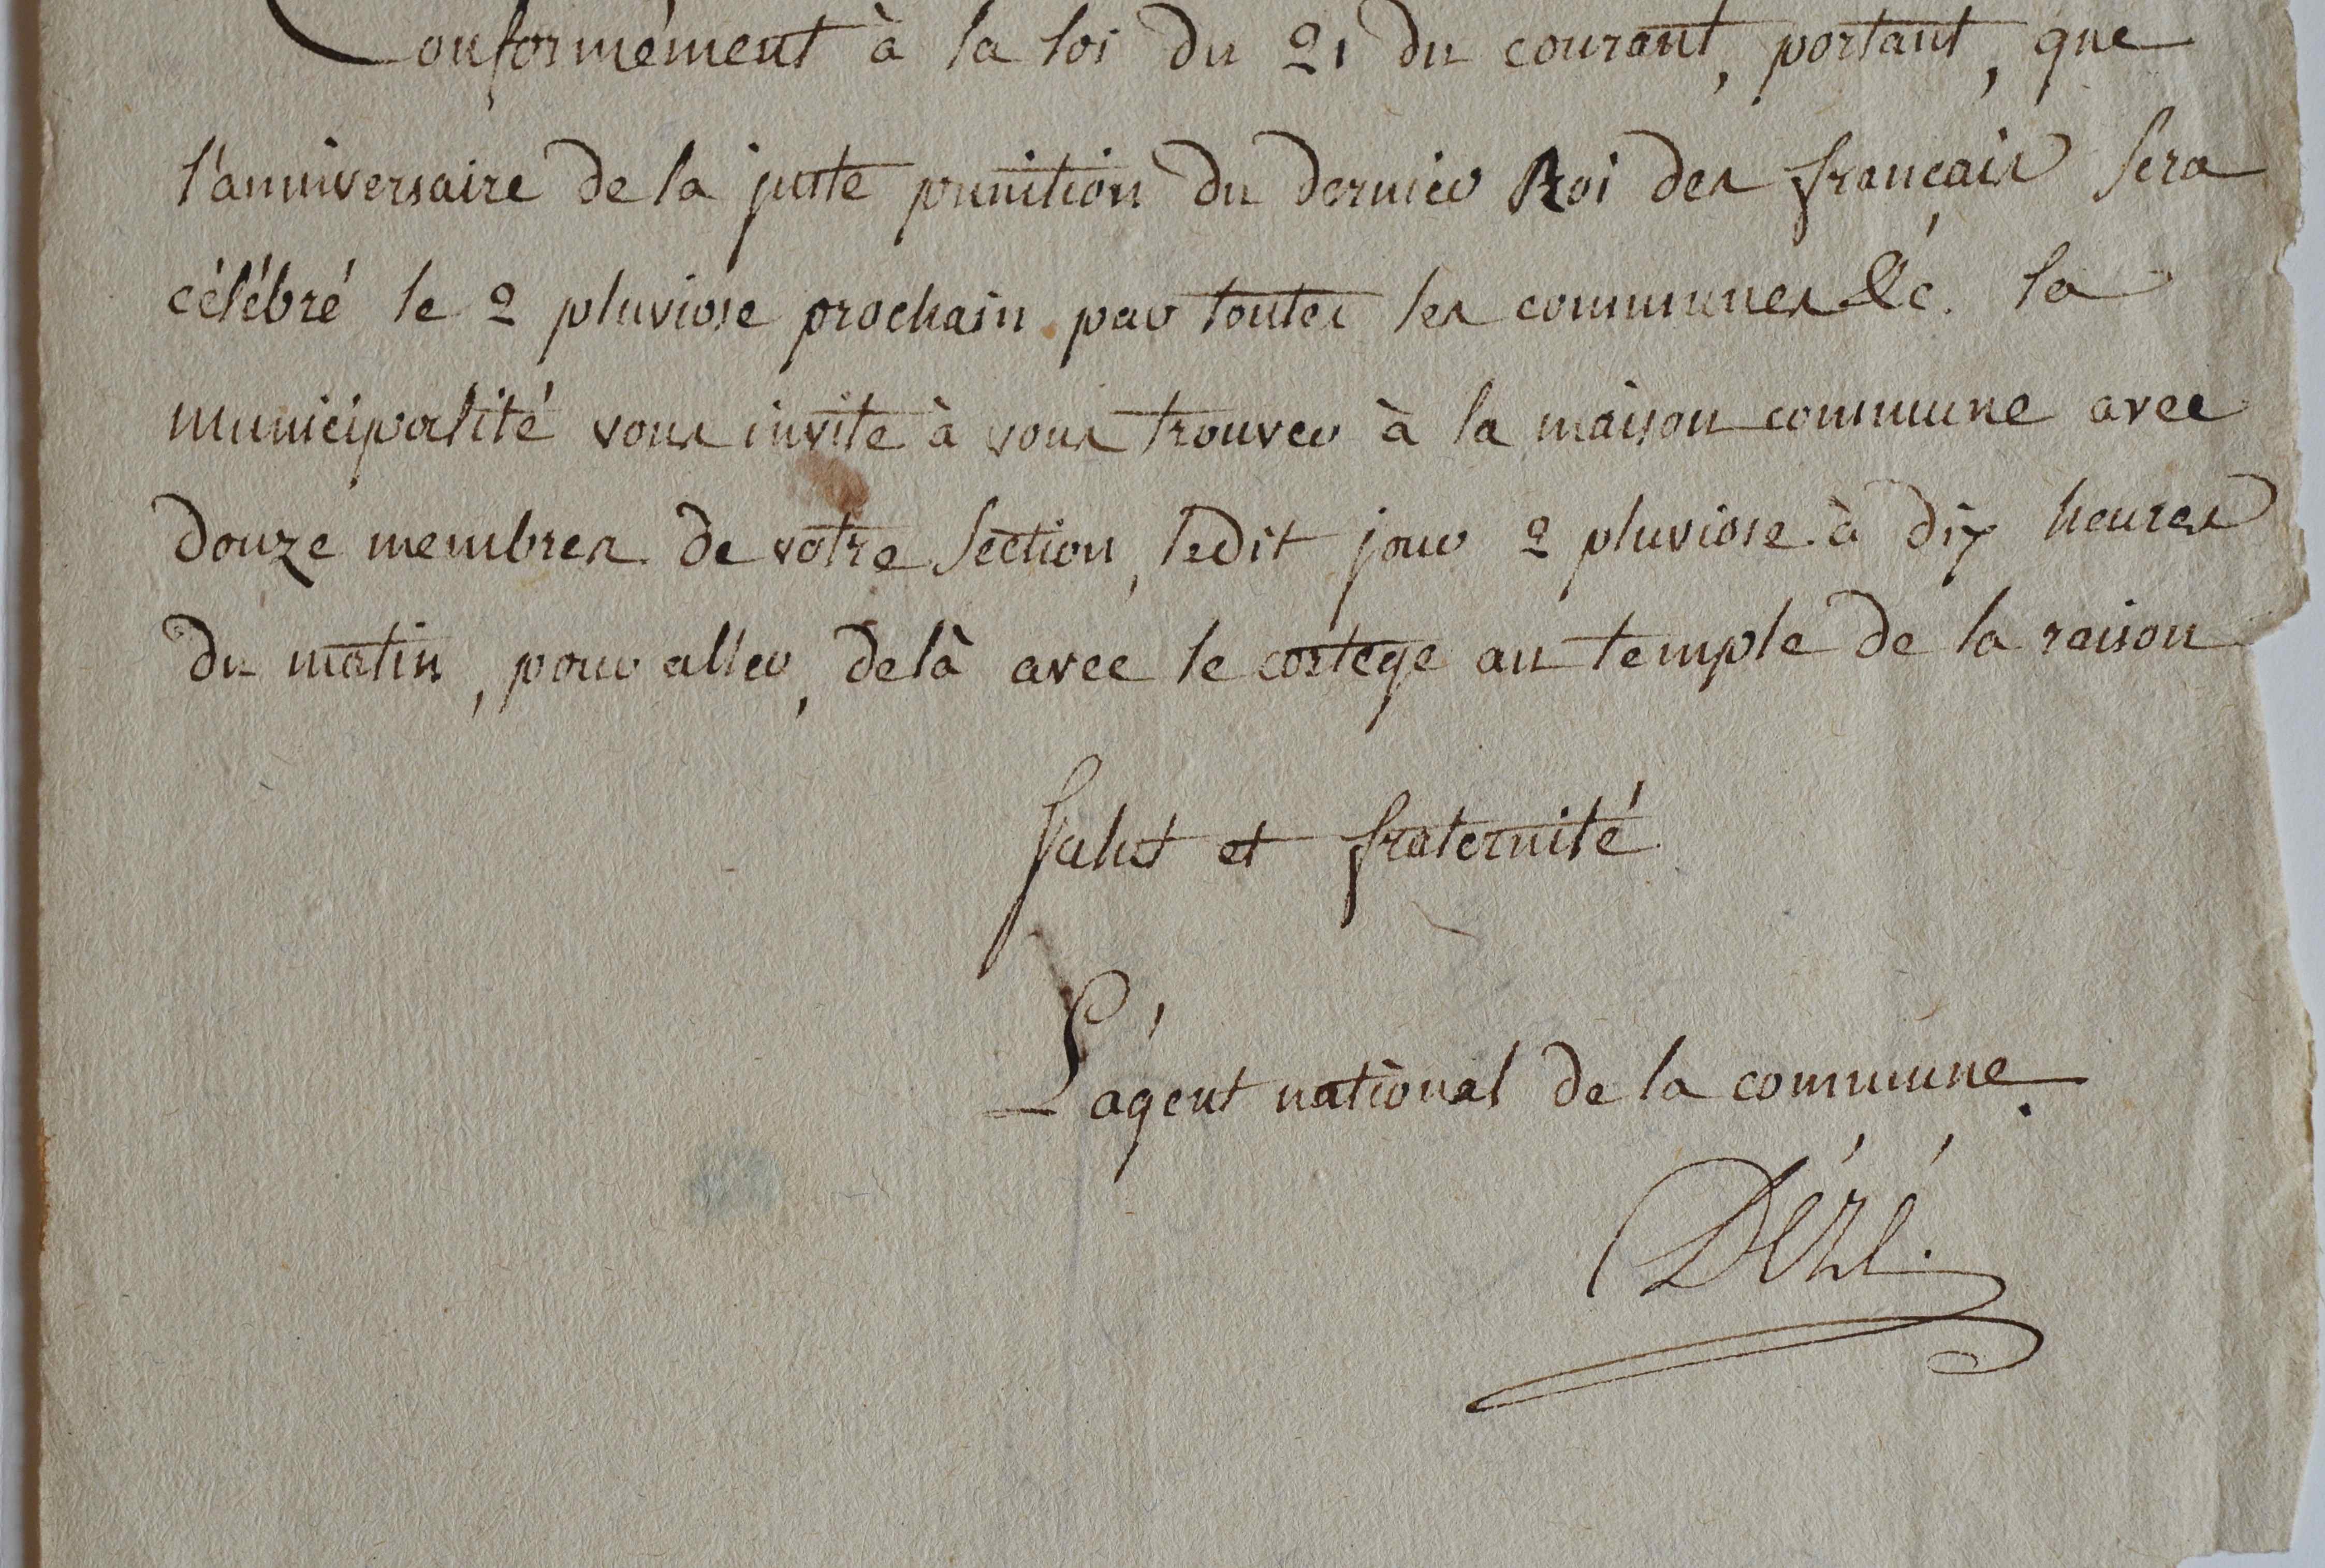 Conformément à la loi du 21 du courant, portant, que
l'anniversaire de la juste punition du dernier Roi des français sera
célébré le 2 pluviose prochain par toutes les communes &c. la
municipalité vous invite à vous trouver à la maison commune avec
douze membres de votre Section, ledit jour 2 pluviose à dix heures
du matin, pour aller, delà avec le cortege au temple de la raison
Salut et fraternité
L'agent national de la commune.
Dézé.